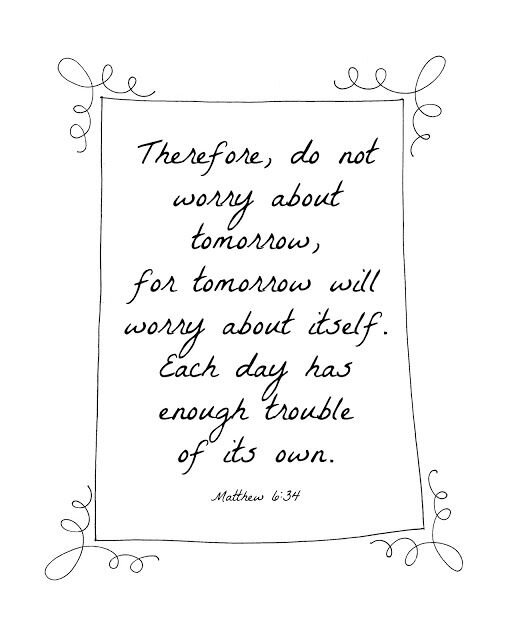 Therefore, do not
worry about
tomorrow,
for tomorrow will
worry about itself.
Each day has
enough trouble
of its own.
Matthew 6:34